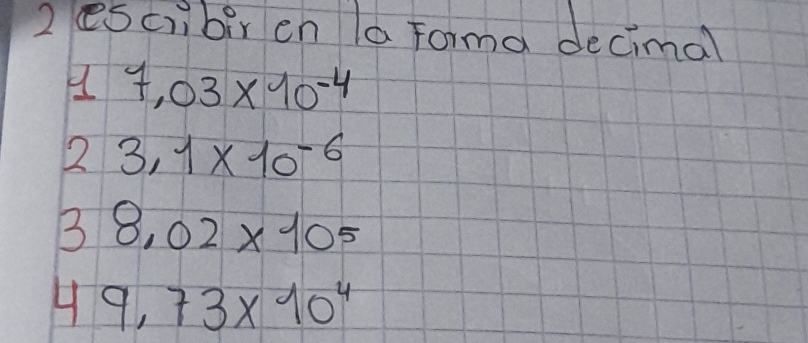 2 escribir en la Forma decimal
1 7,03 x 10⁻⁴
2 3,1 x 10⁻⁶
3 8,02 x 10⁵
4 9,73 x 10⁴